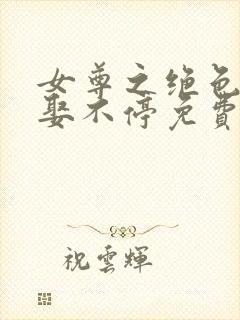 女尊之绝色
娶不停免費
祝雲輝